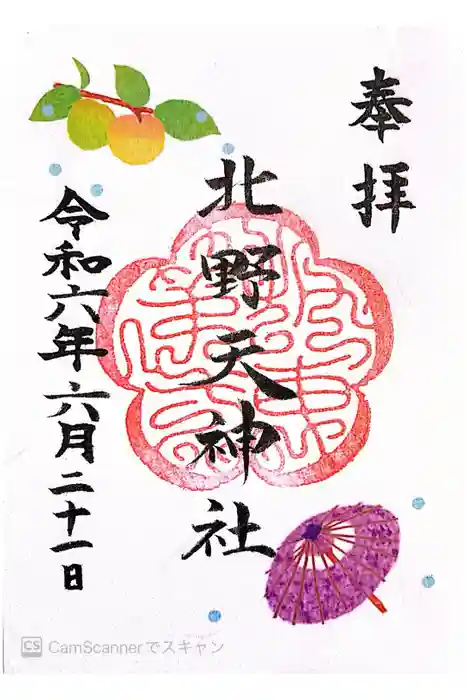 奉拝
北野天神社
令和六年六月二十一日
CS CamScannerでスキャン